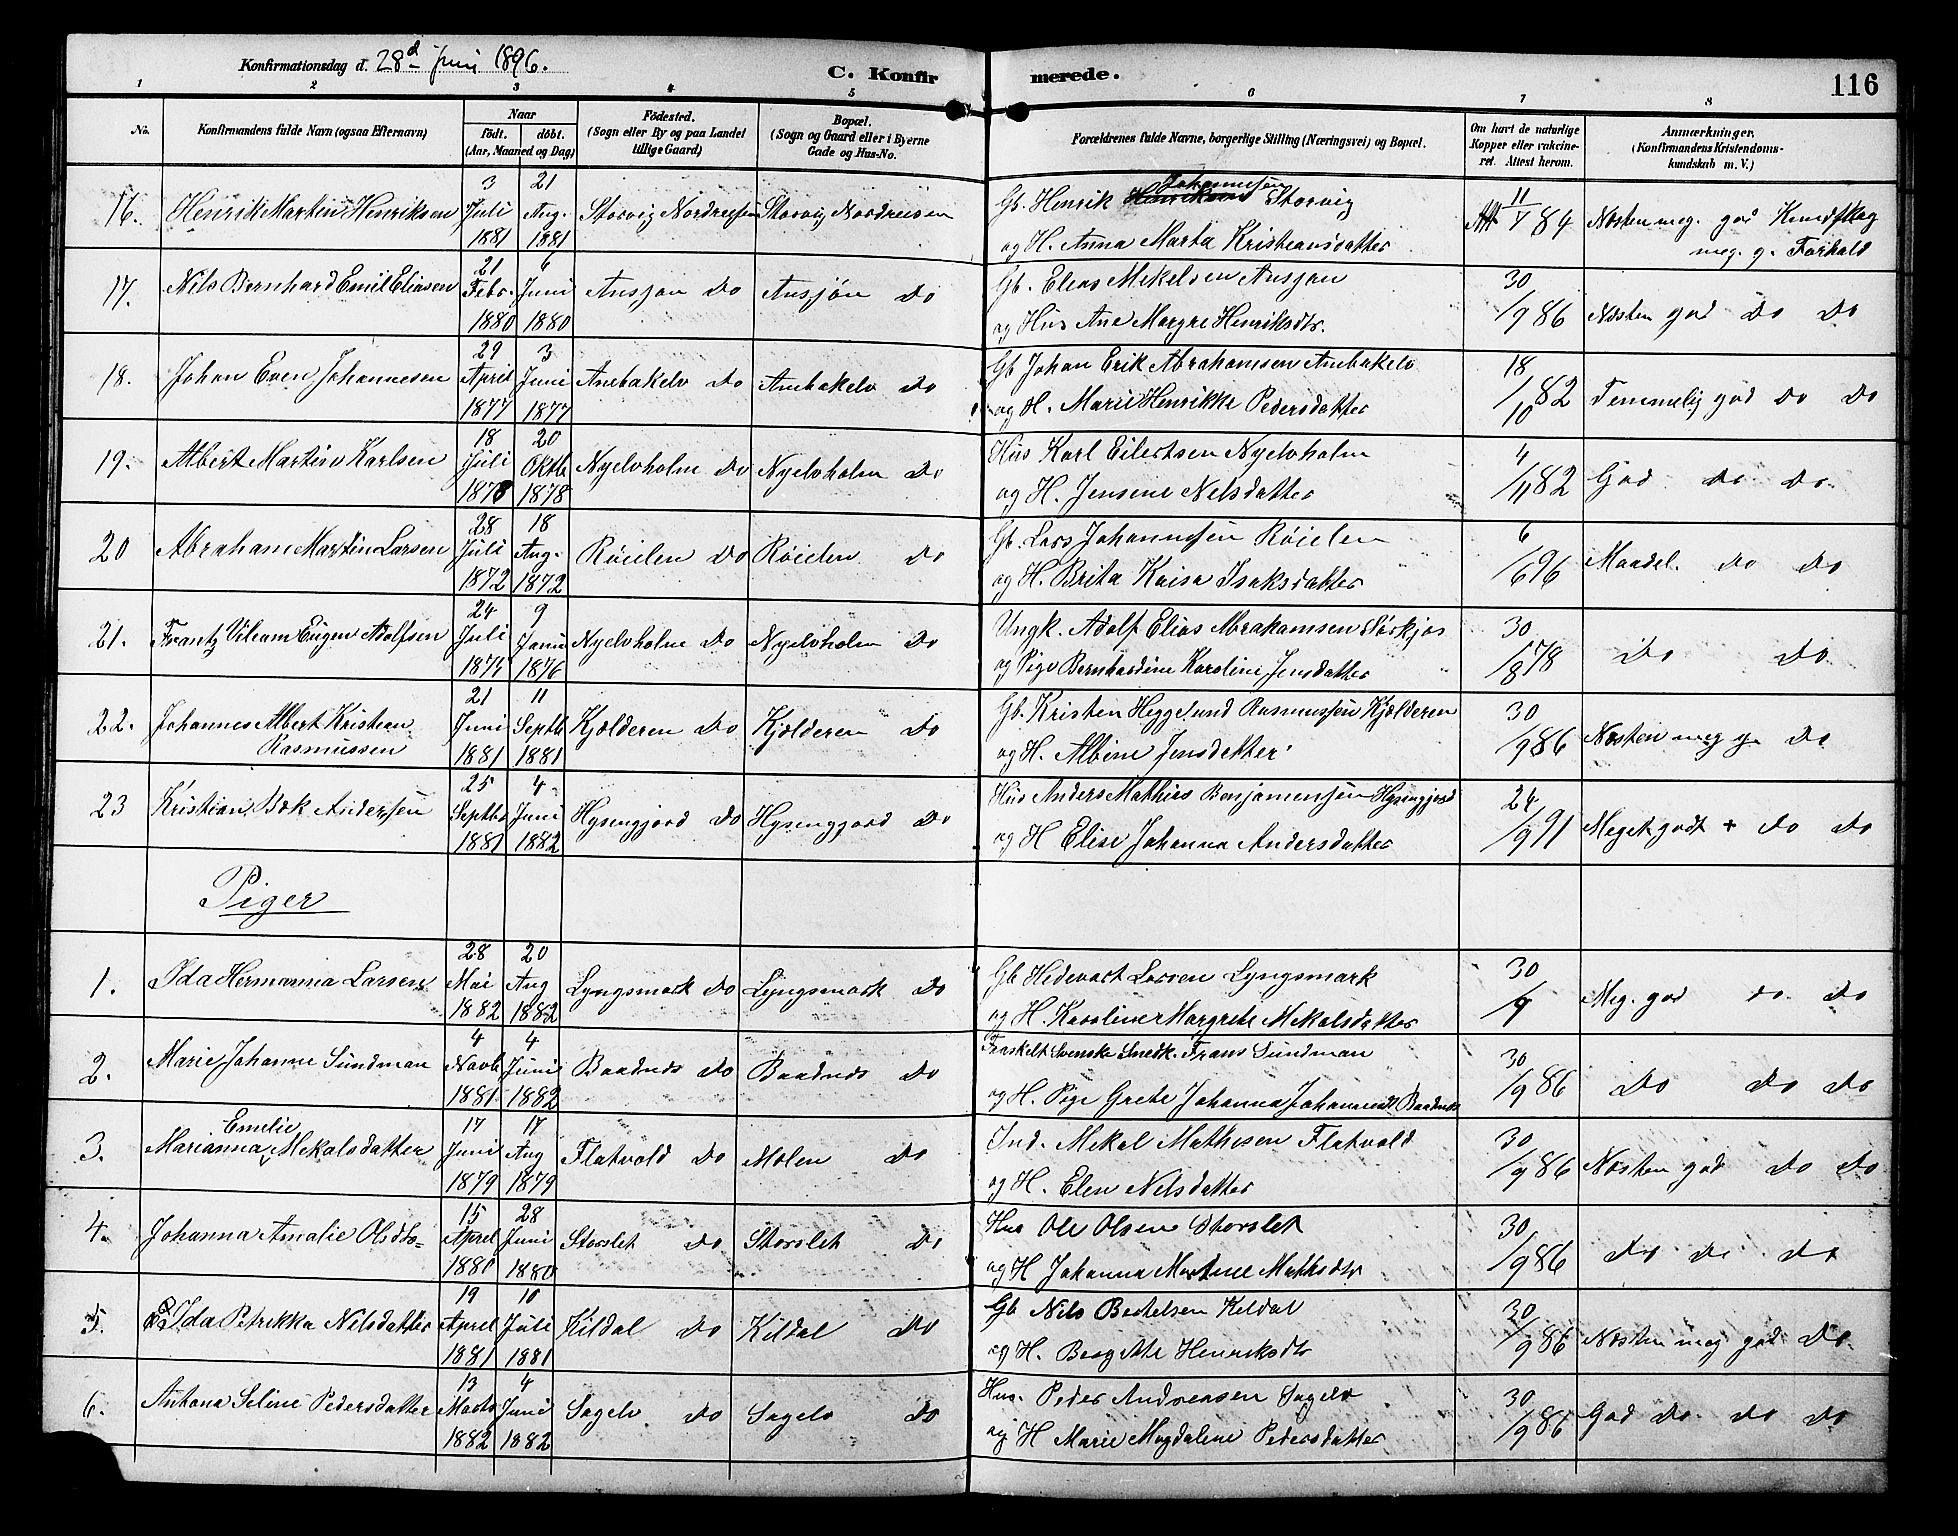 Konfirmationsdag d. 28d Juni 1896.
C. Konfirmerede.
116
1 2 3 4 5 6 7 8
No.
Konfirmandens fulde Navn (ogsaa Efternavn)
Naar
födt. döbt.
(Aar, Maaned og Dag)
Födested.
(Sogn eller By og paa Landet
tillige Gaard)
Bopæl.
(Sogn og Gaard eller i Byerne
Gade og Hus-No.
Forældrenes fulde Navne, borgerlige Stilling (Næringsvei) og Bopæl.
Om havt de naturlige
Kopper eller vakcine-
ret. Attest herom.
Anmærkninger.
(Konfirmandens Kristendoms-
kundskab m. V.)
16. Henrik Martin Henriksen 3 Juli 1881 21 Aug. 1881 Storvig Nordreisen Storvig Nordreisen
Gb. Henrik Johannesen Storvig
og H. Anna Marta Kristiansdatter
Att 11/5 84 Næsten meg. god Kundskag
meg. g. Forhold
17. Nils Bernhard Emil Eliasen 21 Febr. 1880 6 Juni 1880 Ansjøn Do Ansjøn Do
Gb. Elias Mekelsen Ansjøn
og Hus Ane Margre Henriksdtr.
30/9 86 Næsten god Do Do
18. Johan Even Johannesen 29 April 1877 3 Juni 1877 Anebakelv Do Anebakelv Do
Gb Johan Erik Abrahamsen Anebakelv
og H. Marie Henrikke Pedersdatter
18/10 82 Temmelig god Do Do
19. Albert Martin Karlsen 18 Juli 1878 20 Oktb 1878 Nyelvholm Do Nyelvholm Do
Hus Karl Eilertsen Nyelvholm
og H. Jensine Nelsdatter
4/11 82 God Do Do
20 Abraham Martin Larsen 28 Juli 1872 18 Aug. 1872 Röielen Do Röielen Do
Gb. Lars Johannesen Röielen
og H. Brita Kaisa Isaksdatter
6/6 96 Maadel. Do Do
21. Frantz Viliam Eugen Adolfsen 24 Juli 1875 9 Janu 1876 Nyelvholm Do Nyelvholm Do
Ungk. Adolf Elias Abrahamsen Sörkjos
og Pige Bernhardine Karoline Jensdatter
30/8 78 Do Do
22. Johannes Albert Kristian
Rasmussen 21 Juni 1881 11 Septb 1881 Kjælderen Do Kjælderen Do
Gb. Kristen Heggelund Rasmussen Kjælderen
og H. Albine Jensdatter
30/9 86 Næsten meg g. Do
23 Kristian Bæk Andersen 25 Septbr 1881 4 Juni 1882 Hysingjord Do Hysingjord Do
Hus Anders Mathis Benjamensen Hysingjord
og H Elise Johanna Andersdatter
24/9 91 Meget godt + Do Do
Piger
1. Ida Hermanna Larsen 28 Mai 1882 20 Aug 1882 Lyngsmark Do Lyngsmark Do
Gb Hedevart Larsen Lyngsmark
og H. Karoline Margrete Mekalsdatter
30/9 Meg. god do. Do
2. Marie Johanne Sundman 4 Novb 1881 4 Juni 1882 Baadnes Do Baadnes Do
Fraskelt Svenske Snedk. Frans Sundman
og H. Pige Grete Johanna Johannesdt Baadnes
30/9 86 Do Do Do
3. Marianna Emelie Mekalsdatter 17 Juni 1879 17 Aug 1879 Flatvold Do Molen Do
Ind. Mekal Mathesen Flatvold
og H. Elen Nelsdatter
30/9 86 Næsten god Do Do
4. Johanna Amalie Olsdtr 15 April 1880 28 Juni 1880 Storslet Do Storslet Do
Hus Ole Olsen Storslet
og H Johanna Martine Mathisdtr
30/9 86 Do Do Do
5. Ida Petrikka Nilsdatter 19 April 1881 10 Juli 1881 Kildal Do Kildal Do
Gb Nils Bertelsen Kildal
og H. Bergitte Henriksdtr
30/9 86 Næsten meg god Do.
6. Antona Seline Pedersdatter 13 Marts 1882 4 Juni 1882 Sagelv Do Sagelv Do
Hus. Peder Andreasen Sagelv
og H Marie Magdalene Pedersdatter
30/9 86 God Do Do Do